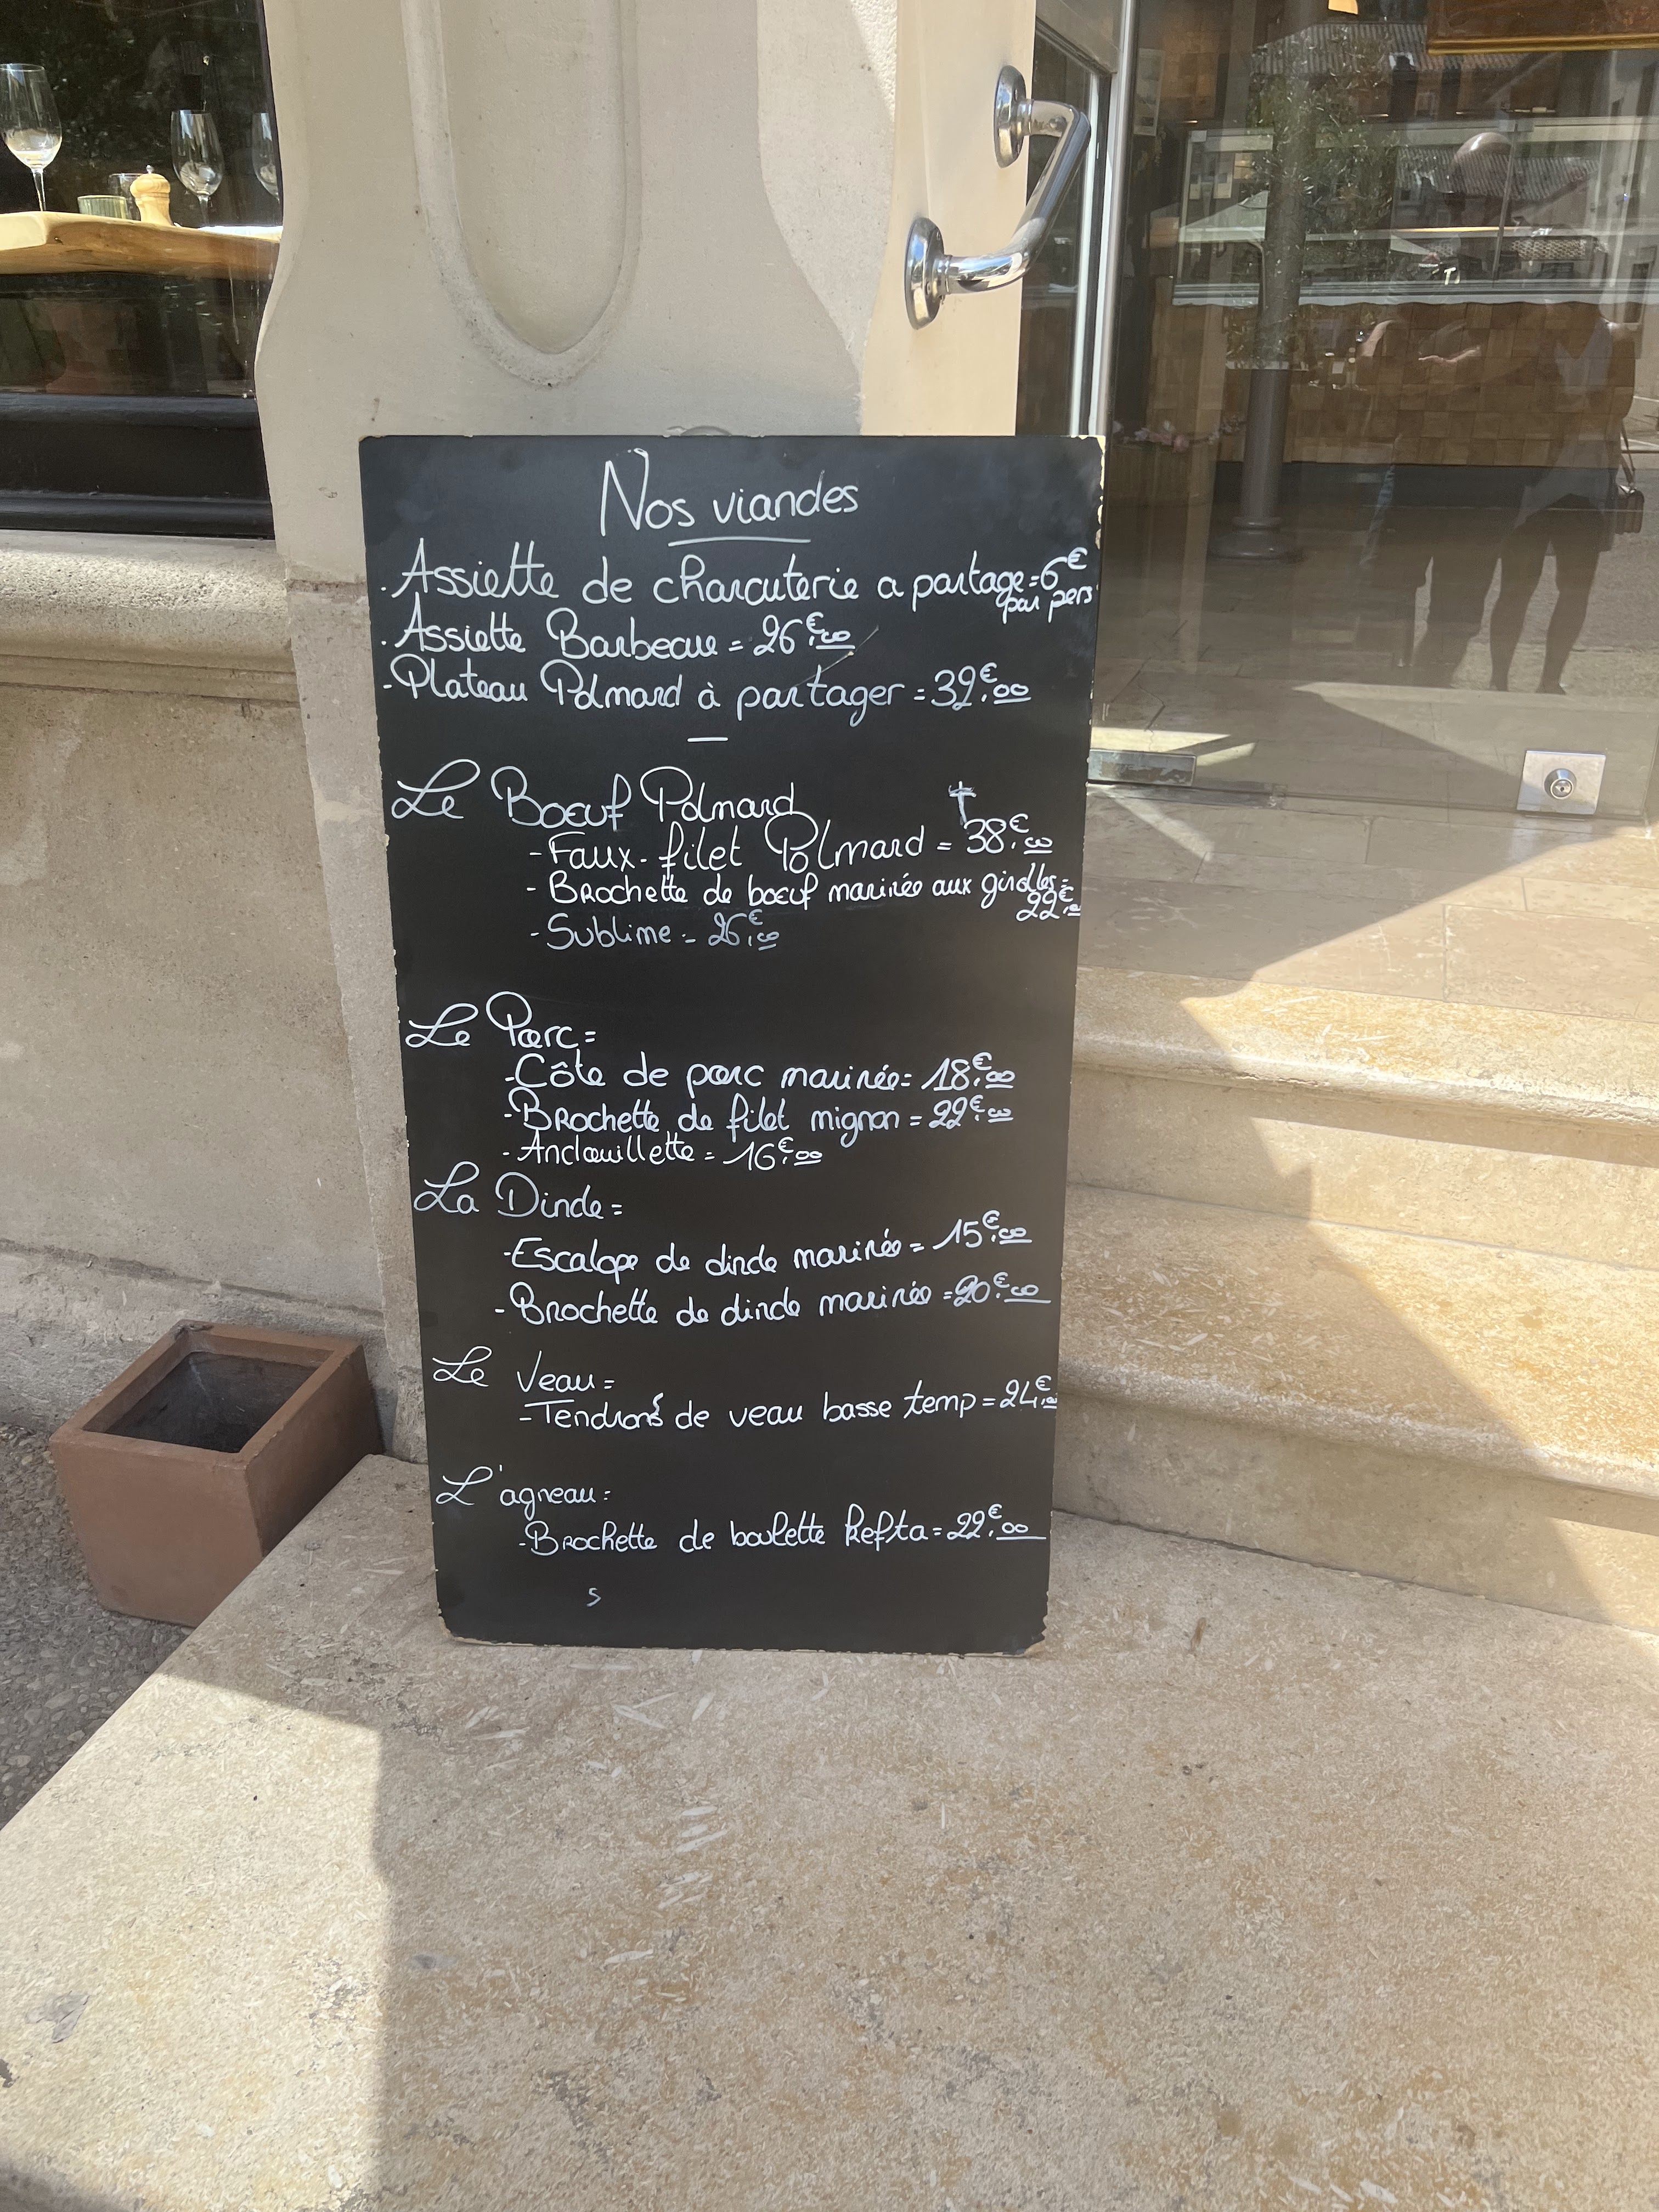 Nos viandes
. Assiette de charcuterie a partage = 6€
par pers
. Assiette Barbeau = 26€,00
- Plateau Polmard à partager = 39€,00
Le Bœuf Polmard
- Faux-filet Polmard = 38€,00
- Brochette de bœuf marinée aux girolles =
22€,00
- Sublime = 26€,00
Le Porc =
- Côte de porc marinée = 18€,00
- Brochette de filet mignon = 22€,00
- Andouillette = 16€,00
La Dinde =
- Escalope de dinde marinée = 15€,00
- Brochette de dinde marinée = 20€,00
Le Veau =
- Tendrons de veau basse temp = 24€,00
L'agneau =
- Brochette de boulette kefta = 22€,00
s